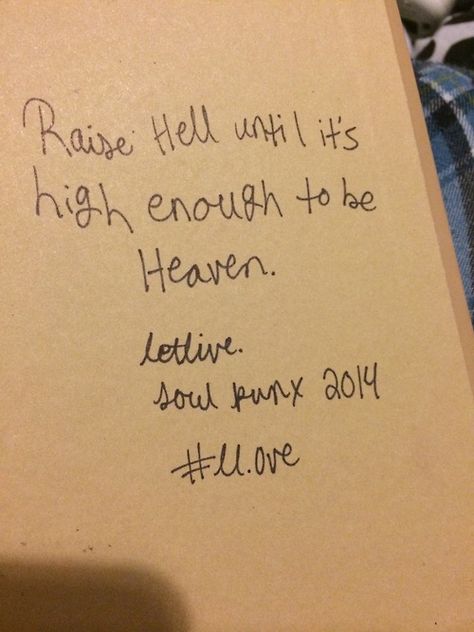 Raise Hell until it's
high enough to be
Heaven.
letlive.
soul punx 2014
#ll.ove